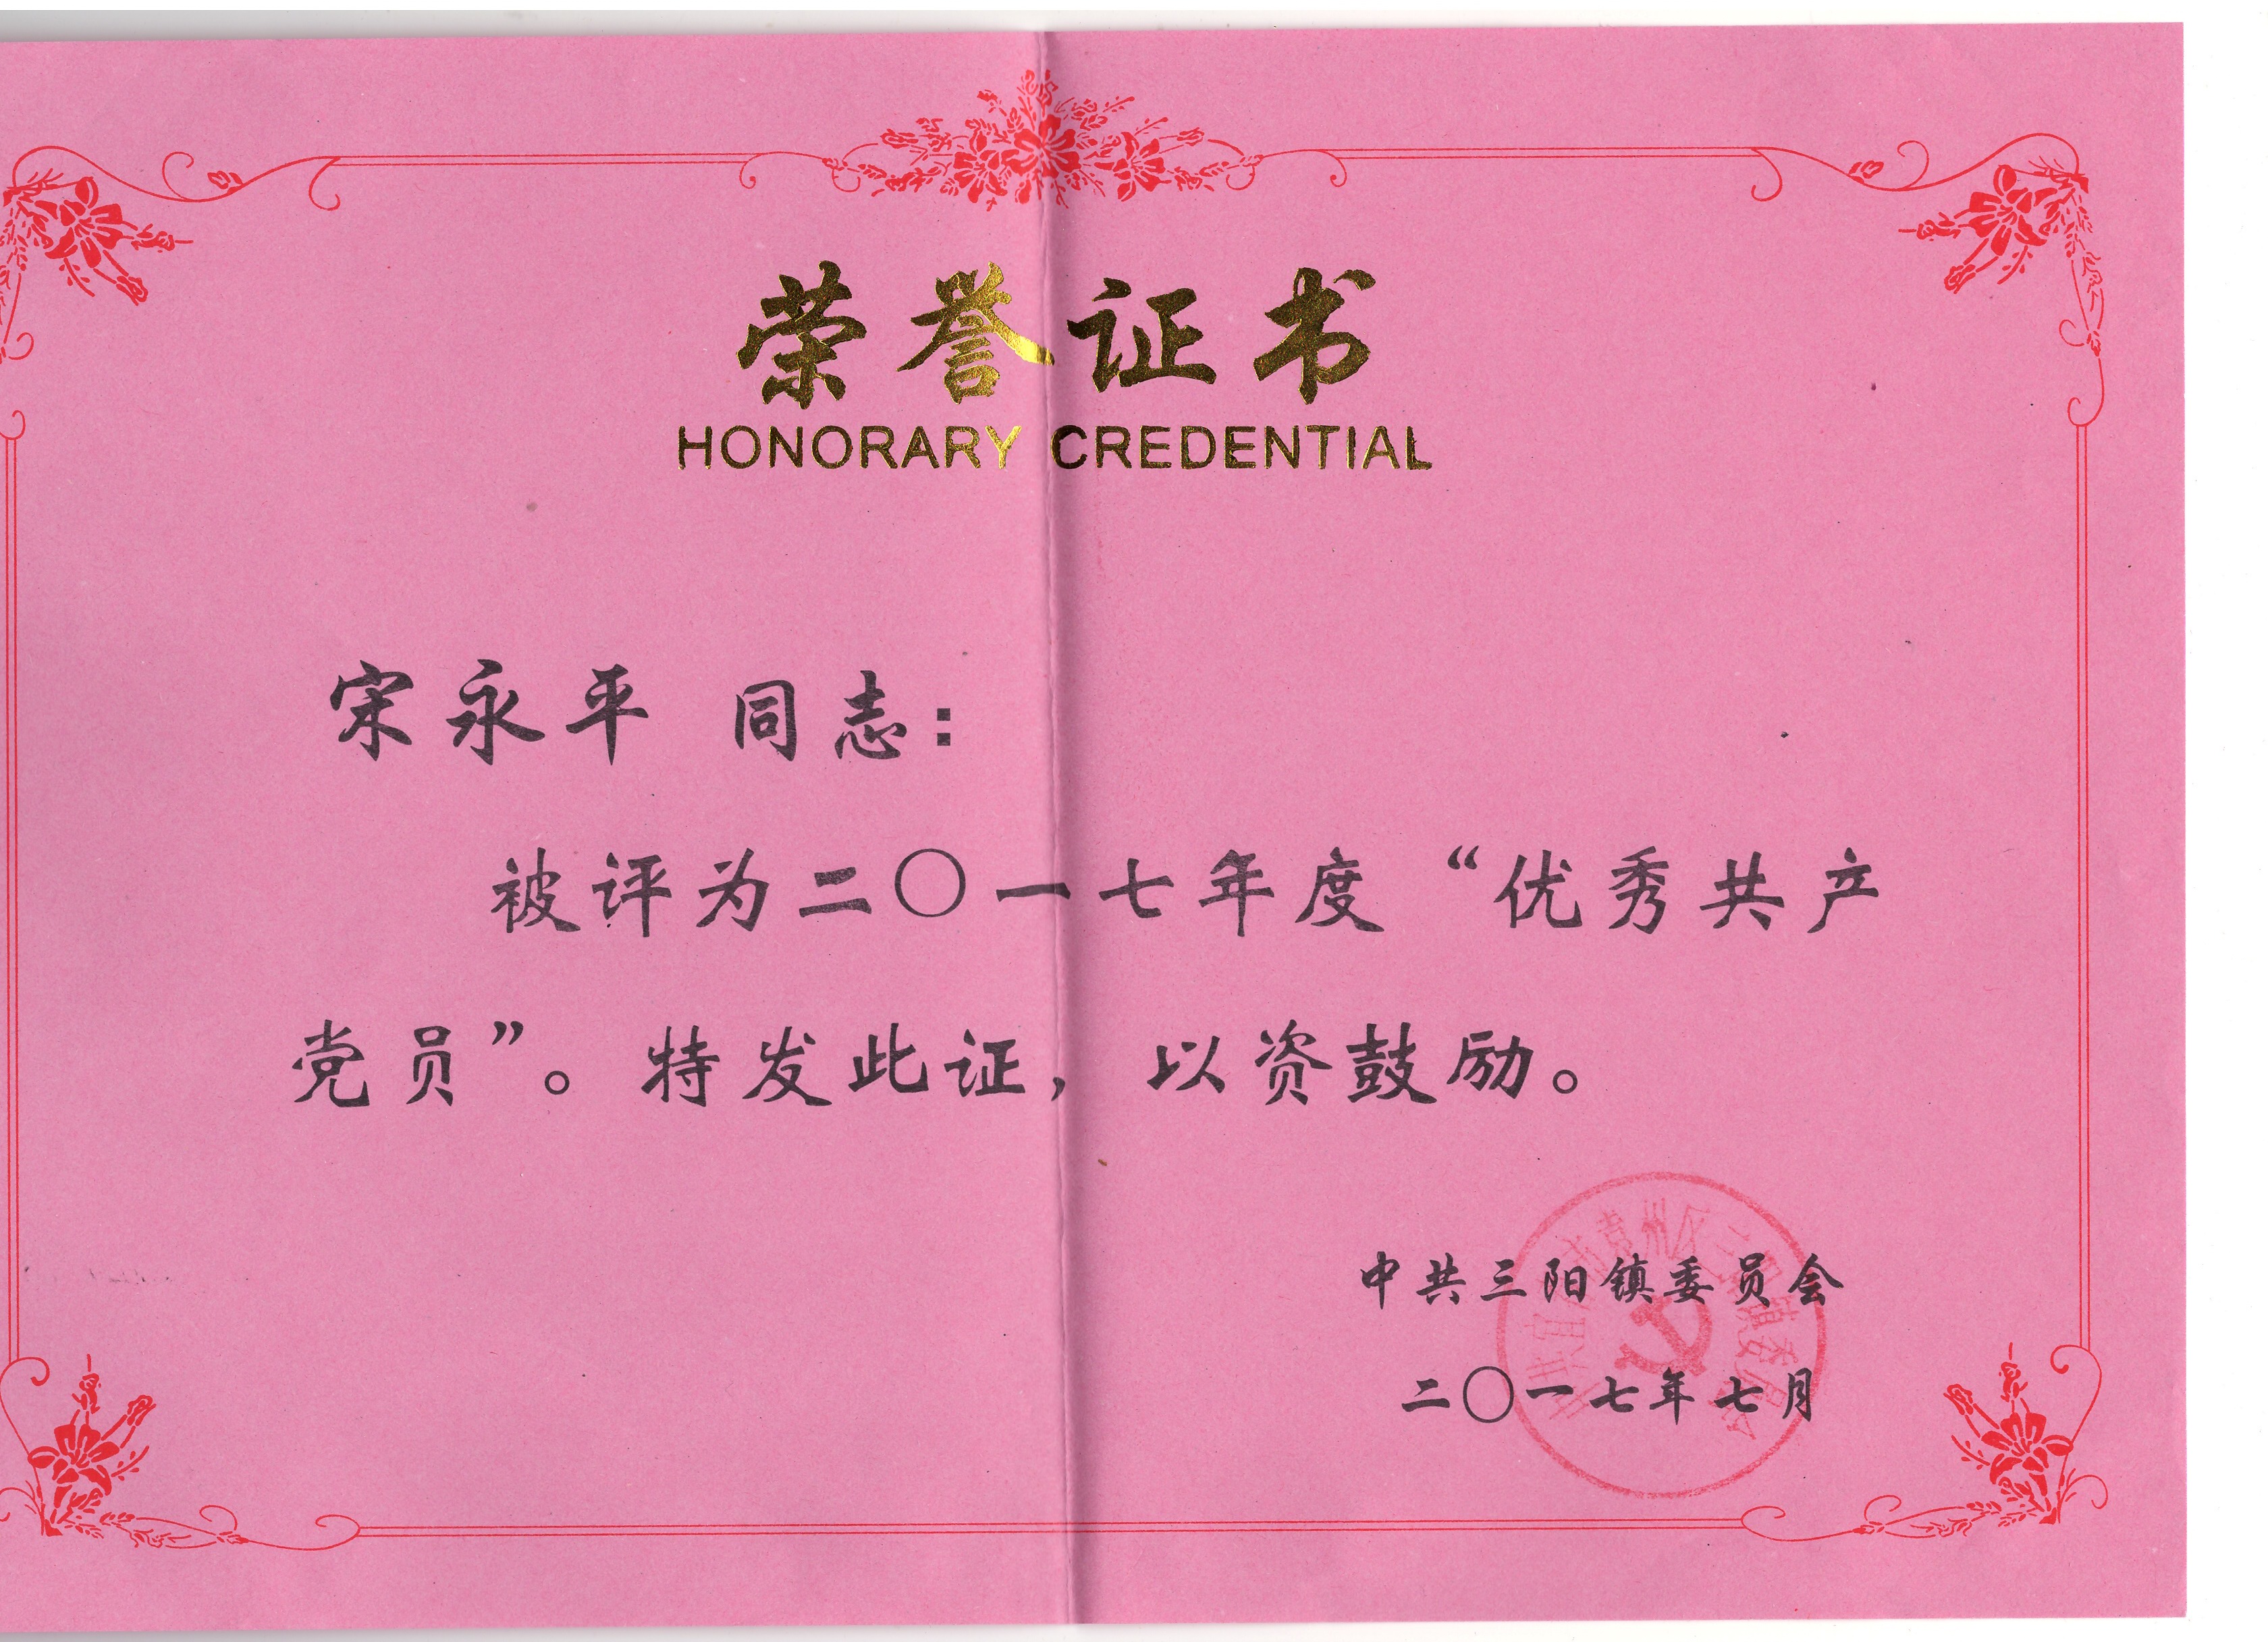 荣誉证书
HONORARY CREDENTIAL
宋永平 同志：
被评为二〇一七年度“优秀共产
党员”。特发此证，以资鼓励。
中共三阳镇委员会
二〇一七年七月